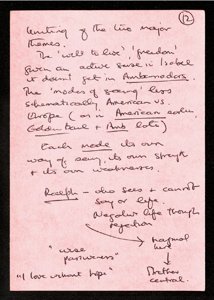 12
Uniting of the two major
themes.
The 'will to live' 'freedom'
given an active sense in Isobel
it doesn't get in Ambassadors.
The 'modes of seeing' less
schematically American vs
Europe (as in American
Golden Bowl + Amb late)
Each mode its own
way of seeing, its own strength
+ its own weaknesses.
Ralph – who sees + cannot
say or live.
Negative life though
rejection
"wise
passiveness"
"I love without hope"
central.